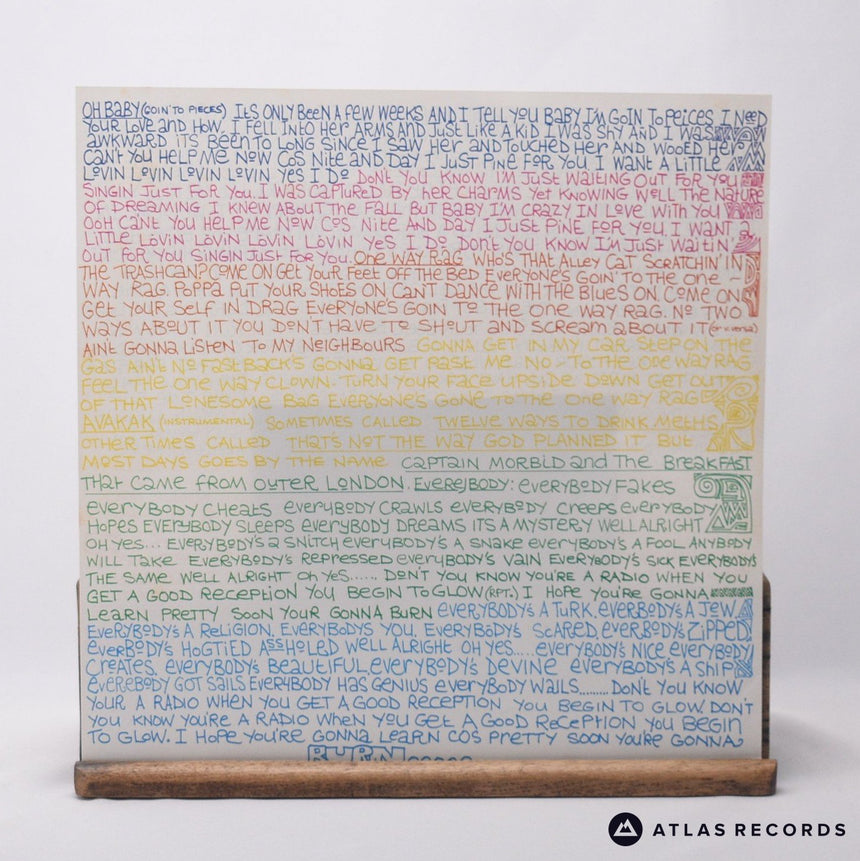 OH BABY (GOIN' TO PIECES) ITS ONLY BEEN A FEW WEEKS AND I TELL YOU BABY I'M GOIN TO PEICES I NEED
YOUR LOVE AND HOW. I FELL INTO HER ARMS AND JUST LIKE A KID I WAS SHY AND I WAS
AWKWARD ITS BEEN TO LONG SINCE I SAW HER AND TOUCHED HER AND WOOED HER
CAN'T YOU HELP ME NOW COS NITE AND DAY I JUST PINE FOR YOU. I WANT A LITTLE
LOVIN LOVIN LOVIN LOVIN YES I DO DON'T YOU KNOW I'M JUST WAITING OUT FOR YOU
SINGIN JUST FOR YOU. I WAS CAPTURED BY HER CHARMS YET KNOWING WELL THE NATURE
OF DREAMING I KNEW ABOUT THE FALL BUT BABY I'M CRAZY IN LOVE WITH YOU
OOH CAN'T YOU HELP ME NOW COS NITE AND DAY I JUST PINE FOR YOU. I WANT A
LITTLE LOVIN LOVIN LOVIN LOVIN YES I DO DON'T YOU KNOW I'M JUST WAITIN
OUT FOR YOU SINGIN JUST FOR YOU. ONE WAY RAG WHO'S THAT ALLEY CAT SCRATCHIN' IN
THE TRASHCAN? COME ON GET YOUR FEET OFF THE BED EVERYONE'S GOIN' TO THE ONE ~
WAY RAG. POPPA PUT YOUR SHOES ON CAN'T DANCE WITH THE BLUES ON. COME ON
GET YOUR SELF IN DRAG EVERYONE'S GOIN TO THE ONE WAY RAG. NO TWO
WAYS ABOUT IT YOU DON'T HAVE TO SHOUT AND SCREAM ABOUT IT (OR X VERSA)
AIN'T GONNA LISTEN TO MY NEIGHBOURS GONNA GET IN MY CAR STEP ON THE
GAS AIN'T NO FASTBACK'S GONNA GET PAST ME NO - TO THE ONE WAY RAG
FEEL THE ONE WAY CLOWN - TURN YOUR FACE UPSIDE DOWN GET OUT
OF THAT LONESOME BAG EVERYONE'S GONE TO THE ONE WAY RAG
AVAKAK (INSTRUMENTAL) SOMETIMES CALLED TWELVE WAYS TO DRINK METHS
OTHER TIMES CALLED THAT'S NOT THE WAY GOD PLANNED IT BUT
MOST DAYS GOES BY THE NAME CAPTAIN MORBID AND THE BREAKFAST
THAT CAME FROM OUTER LONDON. EVEREJBODY: EVERYBODY FAKES
EVERYBODY CHEATS EVERYBODY CRAWLS EVERYBODY CREEPS EVERYBODY
HOPES EVERYBODY SLEEPS EVERYBODY DREAMS ITS A MYSTERY WELL ALRIGHT
OH YES... EVERYBODY'S A SNITCH EVERYBODY'S A SNAKE EVERYBODY'S A FOOL ANYBODY
WILL TAKE EVERYBODY'S REPRESSED EVERYBODY'S VAIN EVERYBODY'S SICK EVERYBODY'S
THE SAME WELL ALRIGHT OH YES...... DON'T YOU KNOW YOU'RE A RADIO WHEN YOU
GET A GOOD RECEPTION YOU BEGIN TO GLOW (RPT.) I HOPE YOU'RE GONNA
LEARN PRETTY SOON YOUR GONNA BURN EVERYBODY'S A TURK, EVERBODY'S A JEW
EVERYBODY'S A RELIGION, EVERYBODYS YOU, EVERYBODY'S SCARED, EVERBODY'S ZIPPED
EVERBODY'S HOGTIED ASSHOLED WELL ALRIGHT OH YES.... EVERYBODY'S NICE EVERYBODY
CREATES EVERYBODY'S BEAUTIFUL EVERYBODY'S DEVINE EVERYBODY'S A SHIP
EVEREBODY GOT SAILS EVERYBODY HAS GENIUS EVERYBODY WAILS........ DON'T YOU KNOW
YOUR A RADIO WHEN YOU GET A GOOD RECEPTION YOU BEGIN TO GLOW. DON'T
YOU KNOW YOU'RE A RADIO WHEN YOU GET A GOOD RECEPTION YOU BEGIN
TO GLOW. I HOPE YOU'RE GONNA LEARN COS PRETTY SOON YOU'RE GONNA
BURN
ATLAS RECORDS